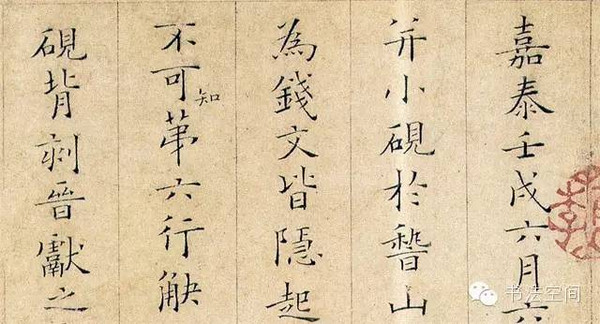 嘉泰壬戌六月六
并小硯於稽山
為錢文皆隱起
不可知苐六行觖
硯背刻晉獻之
书法空间